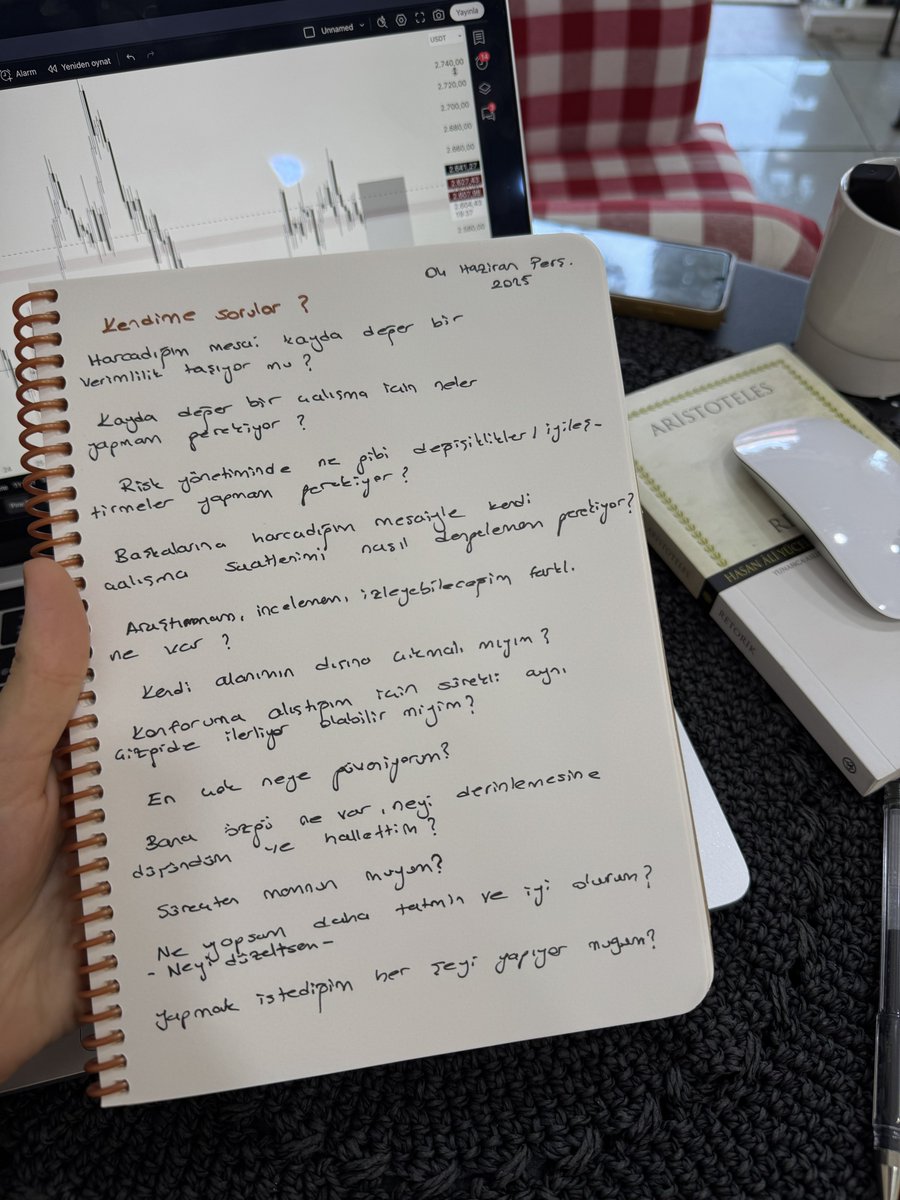 Unnamed
Yayınla
Alarm
Yeniden oynat
USDT
2.740,00
2.720,00
2.700,00
2.680,00
2.660,00
2.641,27
2.580,00
04 Haziran Perş.
2025
Kendime sorular ?
Harcadığım mesai kayda değer bir
verimlilik taşıyor mu ?
Kayda değer bir çalışma için neler
yapmam gerekiyor ?
Risk yönetiminde ne gibi değişiklikler / iyileş-
tirmeler yapmam gerekiyor ?
Başkalarına harcadığım mesaiyle kendi
çalışma saatlerimi nasıl dengelemem gerekiyor?
Araştırmam, incelemem, izleyebileceğim farklı
ne var ?
Kendi alanımın dışına çıkmalı mıyım ?
Konforuma alıştığım için sürekli aynı
çizgide ilerliyor olabilir miyim ?
En çok neye güveniyorum?
Bana özgü ne var, neyi derinlemesine
düşündüm ve hallettim ?
Süreçten memnun muyum?
Ne yapsam daha tatmin ve iyi olurum?
- Neyi düzeltsem -
Yapmak istediğim her şeyi yapıyor muyum?
ARİSTOTELES
HASAN ÂLİ YÜC
ARİSTOTELES
RETORİK